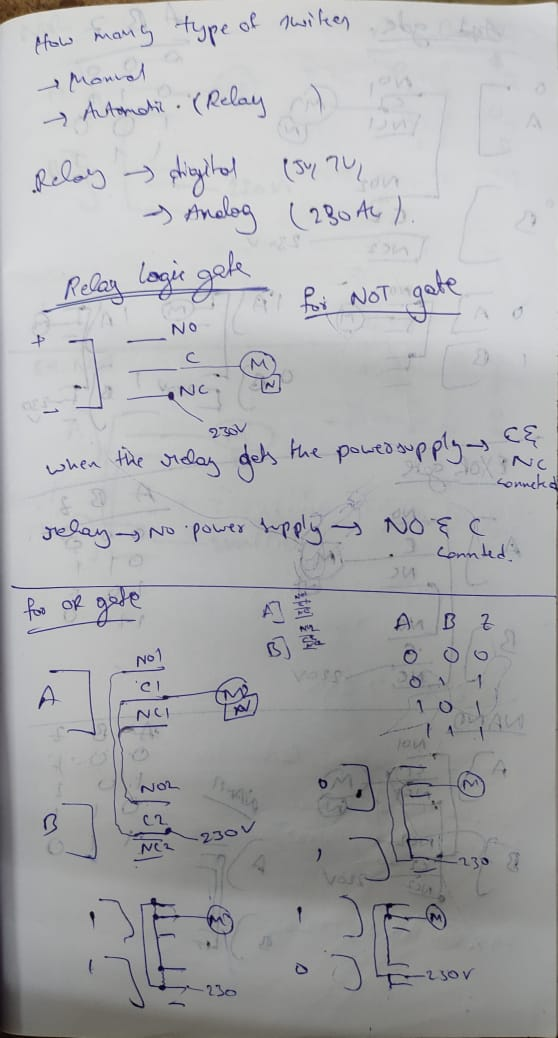 How many type of switches
→ Manual
→ Automatic. (Relay )
Relay → digital (5V, 7V,
→ Analog (230 AC).
Relay Logic gate
for NOT gate
+
-
NO
C
NC
M
N
230V
when the relay gets the power supply → C &
NC
connected
relay → No power supply → NO & C
connted.
for OR gate
A]
B]
A B Z
0 0 0
0 1 1
1 0 1
1 1 1
A
NO1
C1
NC1
M
N
B
NO2
C2
NC2
230V
0
1
M
230
1
1
M
230
1
0
M
230V